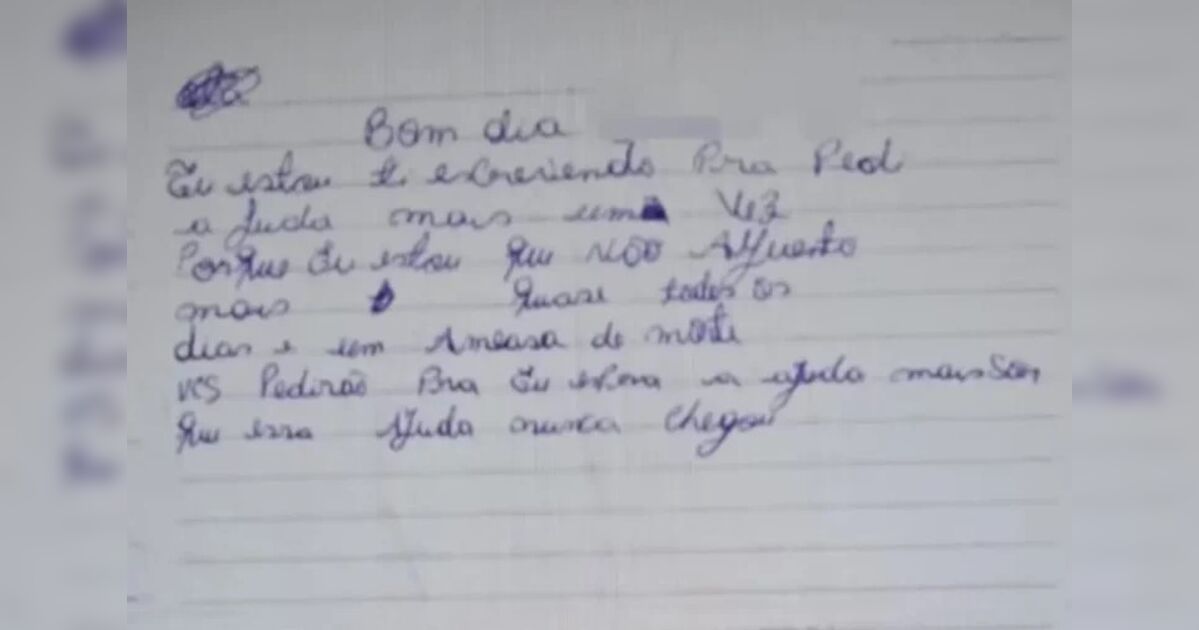 Bom dia
Eu estou te escrevendo Pra Pedi
a Juda mais uma Vez
Porque Eu estou que não Aguento
mais quase todos os
dias e um Ameasa de mote
vcs Pedirão Pra Eu a ajuda mais
que essa Ajuda nunca chegou